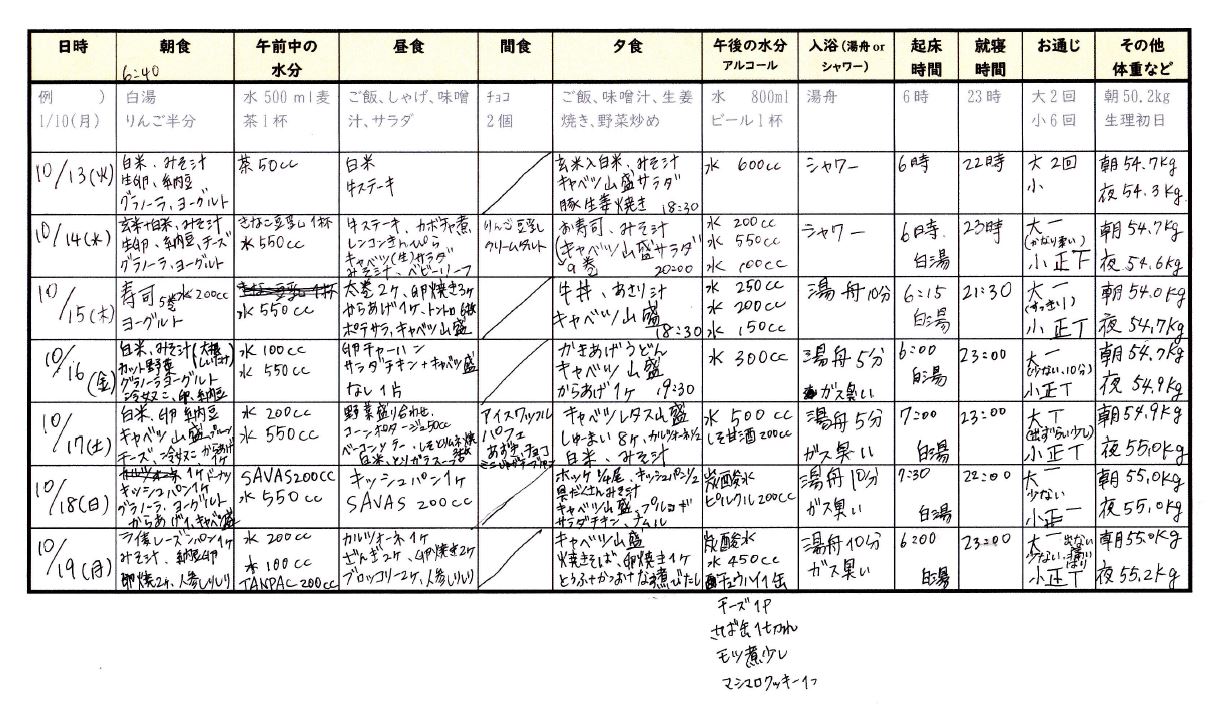 日時
朝食
6:40
午前中の
水分
昼食
間食
夕食
午後の水分
アルコール
入浴(湯舟or
シャワー)
起床
時間
就寝
時間
お通じ
その他
体重など
例 )
1/10(月)
白湯
りんご半分
水500ml麦
茶1杯
ご飯、しゃげ、味噌
汁、サラダ
チョコ
2個
ご飯、味噌汁、生姜
焼き、野菜炒め
水 800ml
ビール1杯
湯舟
6時
23時
大2回
小6回
朝50.2kg
生理初日
10/13(火)
白米、みそ汁
生卵、納豆
グラノーラ、ヨーグルト
茶50cc
白米
牛ステーキ
玄米入白米、みそ汁
キャベツ山盛サラダ
豚生姜焼き 18:30
水 600cc
シャワー
6時
22時
大2回
小
朝54.7kg
夜54.3kg
10/14(水)
玄米+白米、みそ汁
生卵、納豆、チーズ
グラノーラ、ヨーグルト
きなこ豆乳1杯
水550cc
牛ステーキ、カボチャ煮、
レンコンきんぴら
キャベツ(生)サラダ
みそ汁、ベビーリーフ
りんご豆乳
クリームタルト
お寿司、みそ汁
(キャベツ山盛サラダ
9巻 20:00
水 200cc
水 550cc
水 100cc
シャワー
6時
白湯
23時
大一
小正下
朝54.7kg
夜54.6kg
10/15(木)
寿司5巻 水200cc
ヨーグルト
水550cc
太巻2ヶ、卵焼き3ヶ
からあげ1ヶ、トントロ
ポテサラ、キャベツ山盛
牛丼、あさり汁
キャベツ山盛
18:30
水 250cc
水 200cc
水 150cc
湯舟10分
6:15
白湯
21:30
大一
(すっきり)
小正丁
朝54.0kg
夜54.7kg
10/16(金)
白米、みそ汁
カット野菜
グラノーラヨーグルト
冷奴、卵、納豆
水100cc
水550cc
卵チャーハン
サラダチキン+キャベツ盛
なし1片
かきあげうどん
キャベツ山盛
からあげ1ヶ 19:30
水300cc
湯舟5分
ガス臭い
6:00
白湯
23:00
大一
(少ない、10分)
小正丁
朝54.7kg
夜54.9kg
10/17(土)
白米、卵、納豆
キャベツ山盛
チーズ、冷奴、からあげ
1ヶ
水200cc
水550cc
野菜盛り合わせ、
コーンポタージュ50cc
アイスワッフル
パフェ
キャベツレタス山盛
しゅーまい8ヶ、カルツォーネ1/2
白米、みそ汁
水500cc
しそ甘酒200cc
湯舟5分
ガス臭い
7:00
白湯
23:00
大丁
(出ずらい少し)
小正丁
朝54.9kg
夜55.0kg
10/18(日)
キッシュパン1ヶ
グラノーラ、ヨーグルト
からあげ1、キャベツ盛
SAVAS200cc
水550cc
キッシュパン1ヶ
SAVAS 200cc
ホッケ1/4尾、キッシュパン1/2
具だくさんみそ汁
サラダチキン、ナムル
炭酸水
ピルクル200cc
湯舟10分
ガス臭い
7:30
白湯
22:00
大一
少ない
小正一
朝55.0kg
夜55.0kg
10/19(月)
レーズンパン1ヶ
みそ汁、納豆卵
卵焼2ヶ、人参しりしり
水200cc
水100cc
TANPAC200cc
カルツォーネ1ヶ
ざんぎ2ヶ、卵焼き2ヶ
ブロッコリー2ヶ、人参しりしり
キャベツ山盛
焼きそば、卵焼き1ヶ
とうふ
炭酸水
水450cc
酎チュウハイ1缶
チーズ1P
さば缶1切れ
モツ煮少し
マシマロクッキー1つ
湯舟10分
ガス臭い
6:00
白湯
23:00
大一
小正丁
朝55.0kg
夜55.2kg